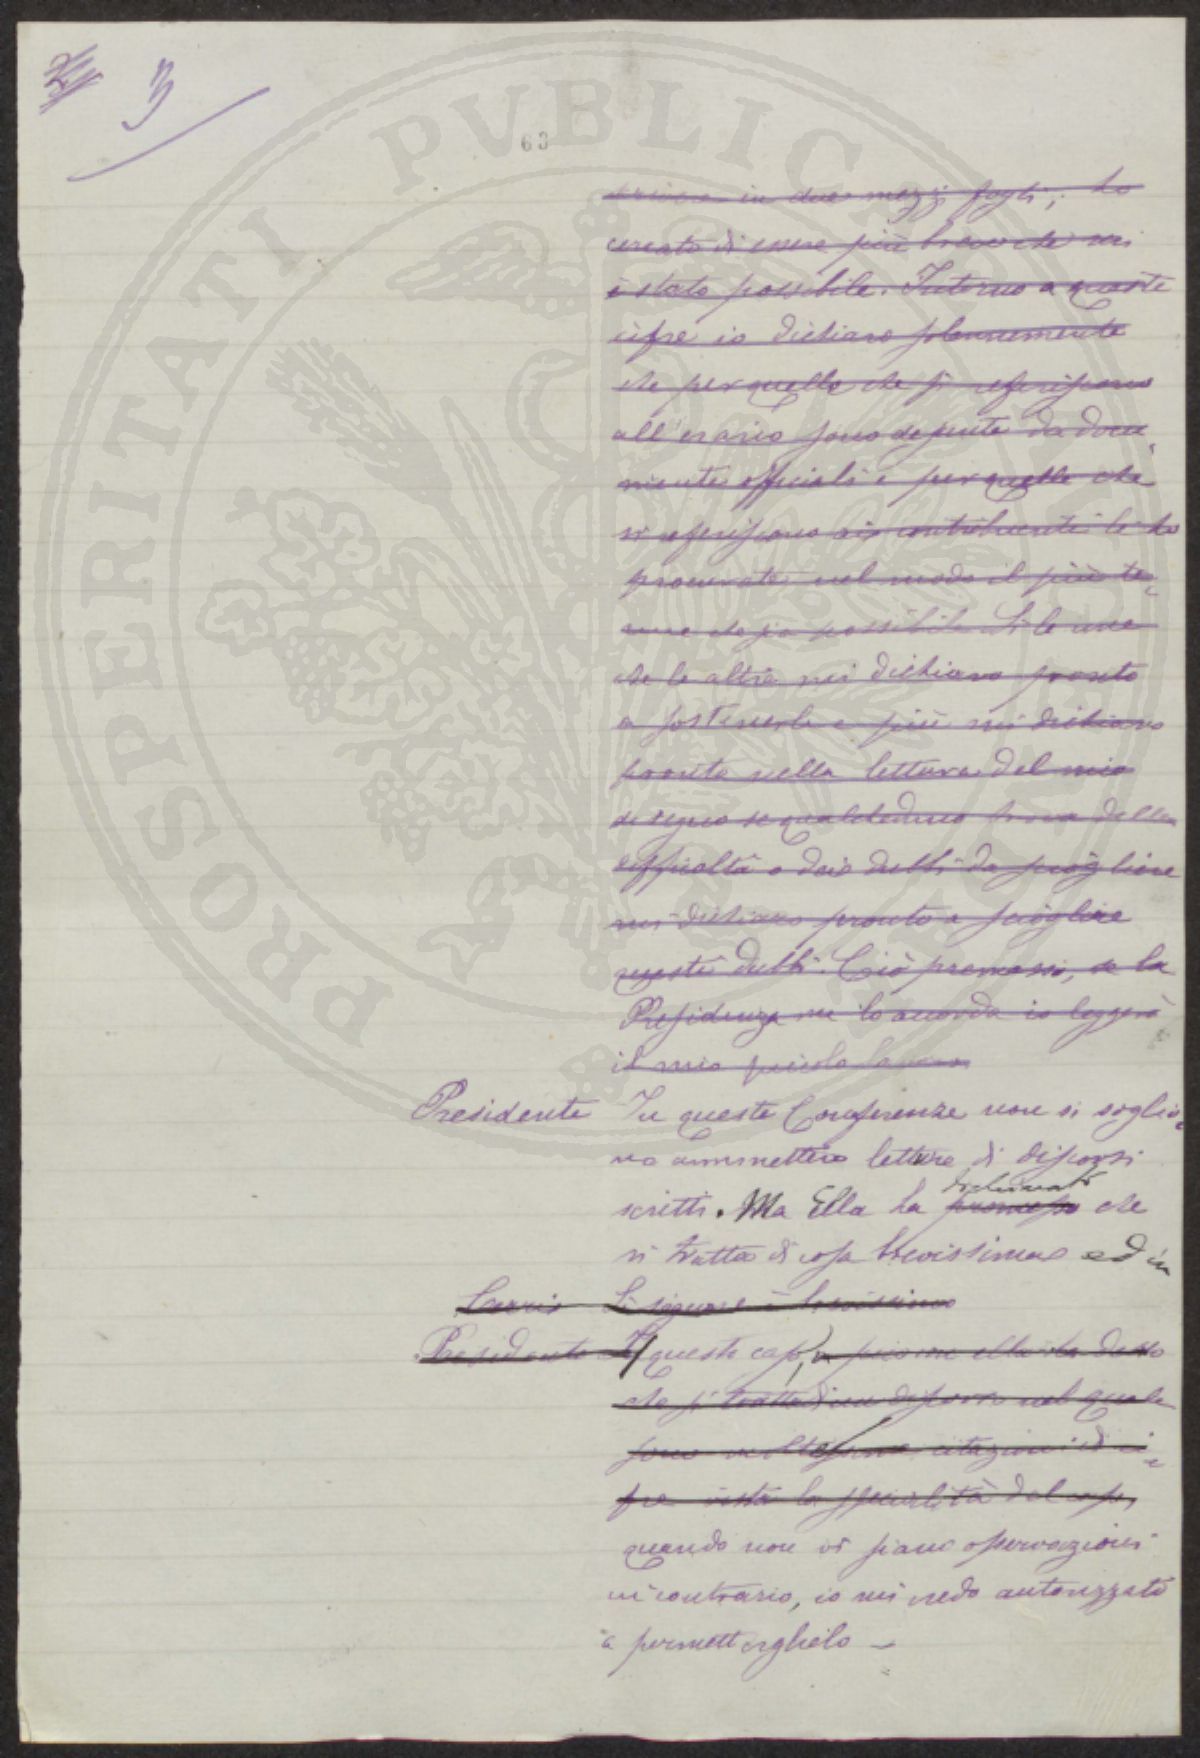 3
63
in due mezzi fogli; ho
cercato di essere più breve che mi
è stato possibile. Intorno a queste
cifre io dichiaro solennemente
che per quello che si riferiscono
all'erario sono desunte da docu
menti officiali e per quelle che
si riferiscono ai contribuenti le ho
procurate nel modo il più te
nue che sia possibile. Sì le une
che le altre mi dichiaro pronto
a sostenerle e più mi dichiaro
pronto nella lettura del mio
se qualcheduno trova delle
difficoltà o dei dubbi da sciogliere
mi dichiaro pronto a sciogliere
questi dubbi. Ciò premesso, se la
Presidenza me lo accorda io leggerò
il mio piccolo lavoro
Presidente In queste Conferenze non si soglio
no ammettere letture di discorsi
dichiarato
scritti. Ma Ella ha promesso che
si tratta di cosa brevissima ed in
Sì signore è brevissimo
Presidente questo caso, siccome ella ha detto
che si tratta di un discorso nel quale
sono molte citazioni di ci
fre vista la specialità del caso,
quando non vi siano osservazioni
in contrario, io mi credo autorizzato
a permetterglielo
PROSPERITATI PUBLICAE